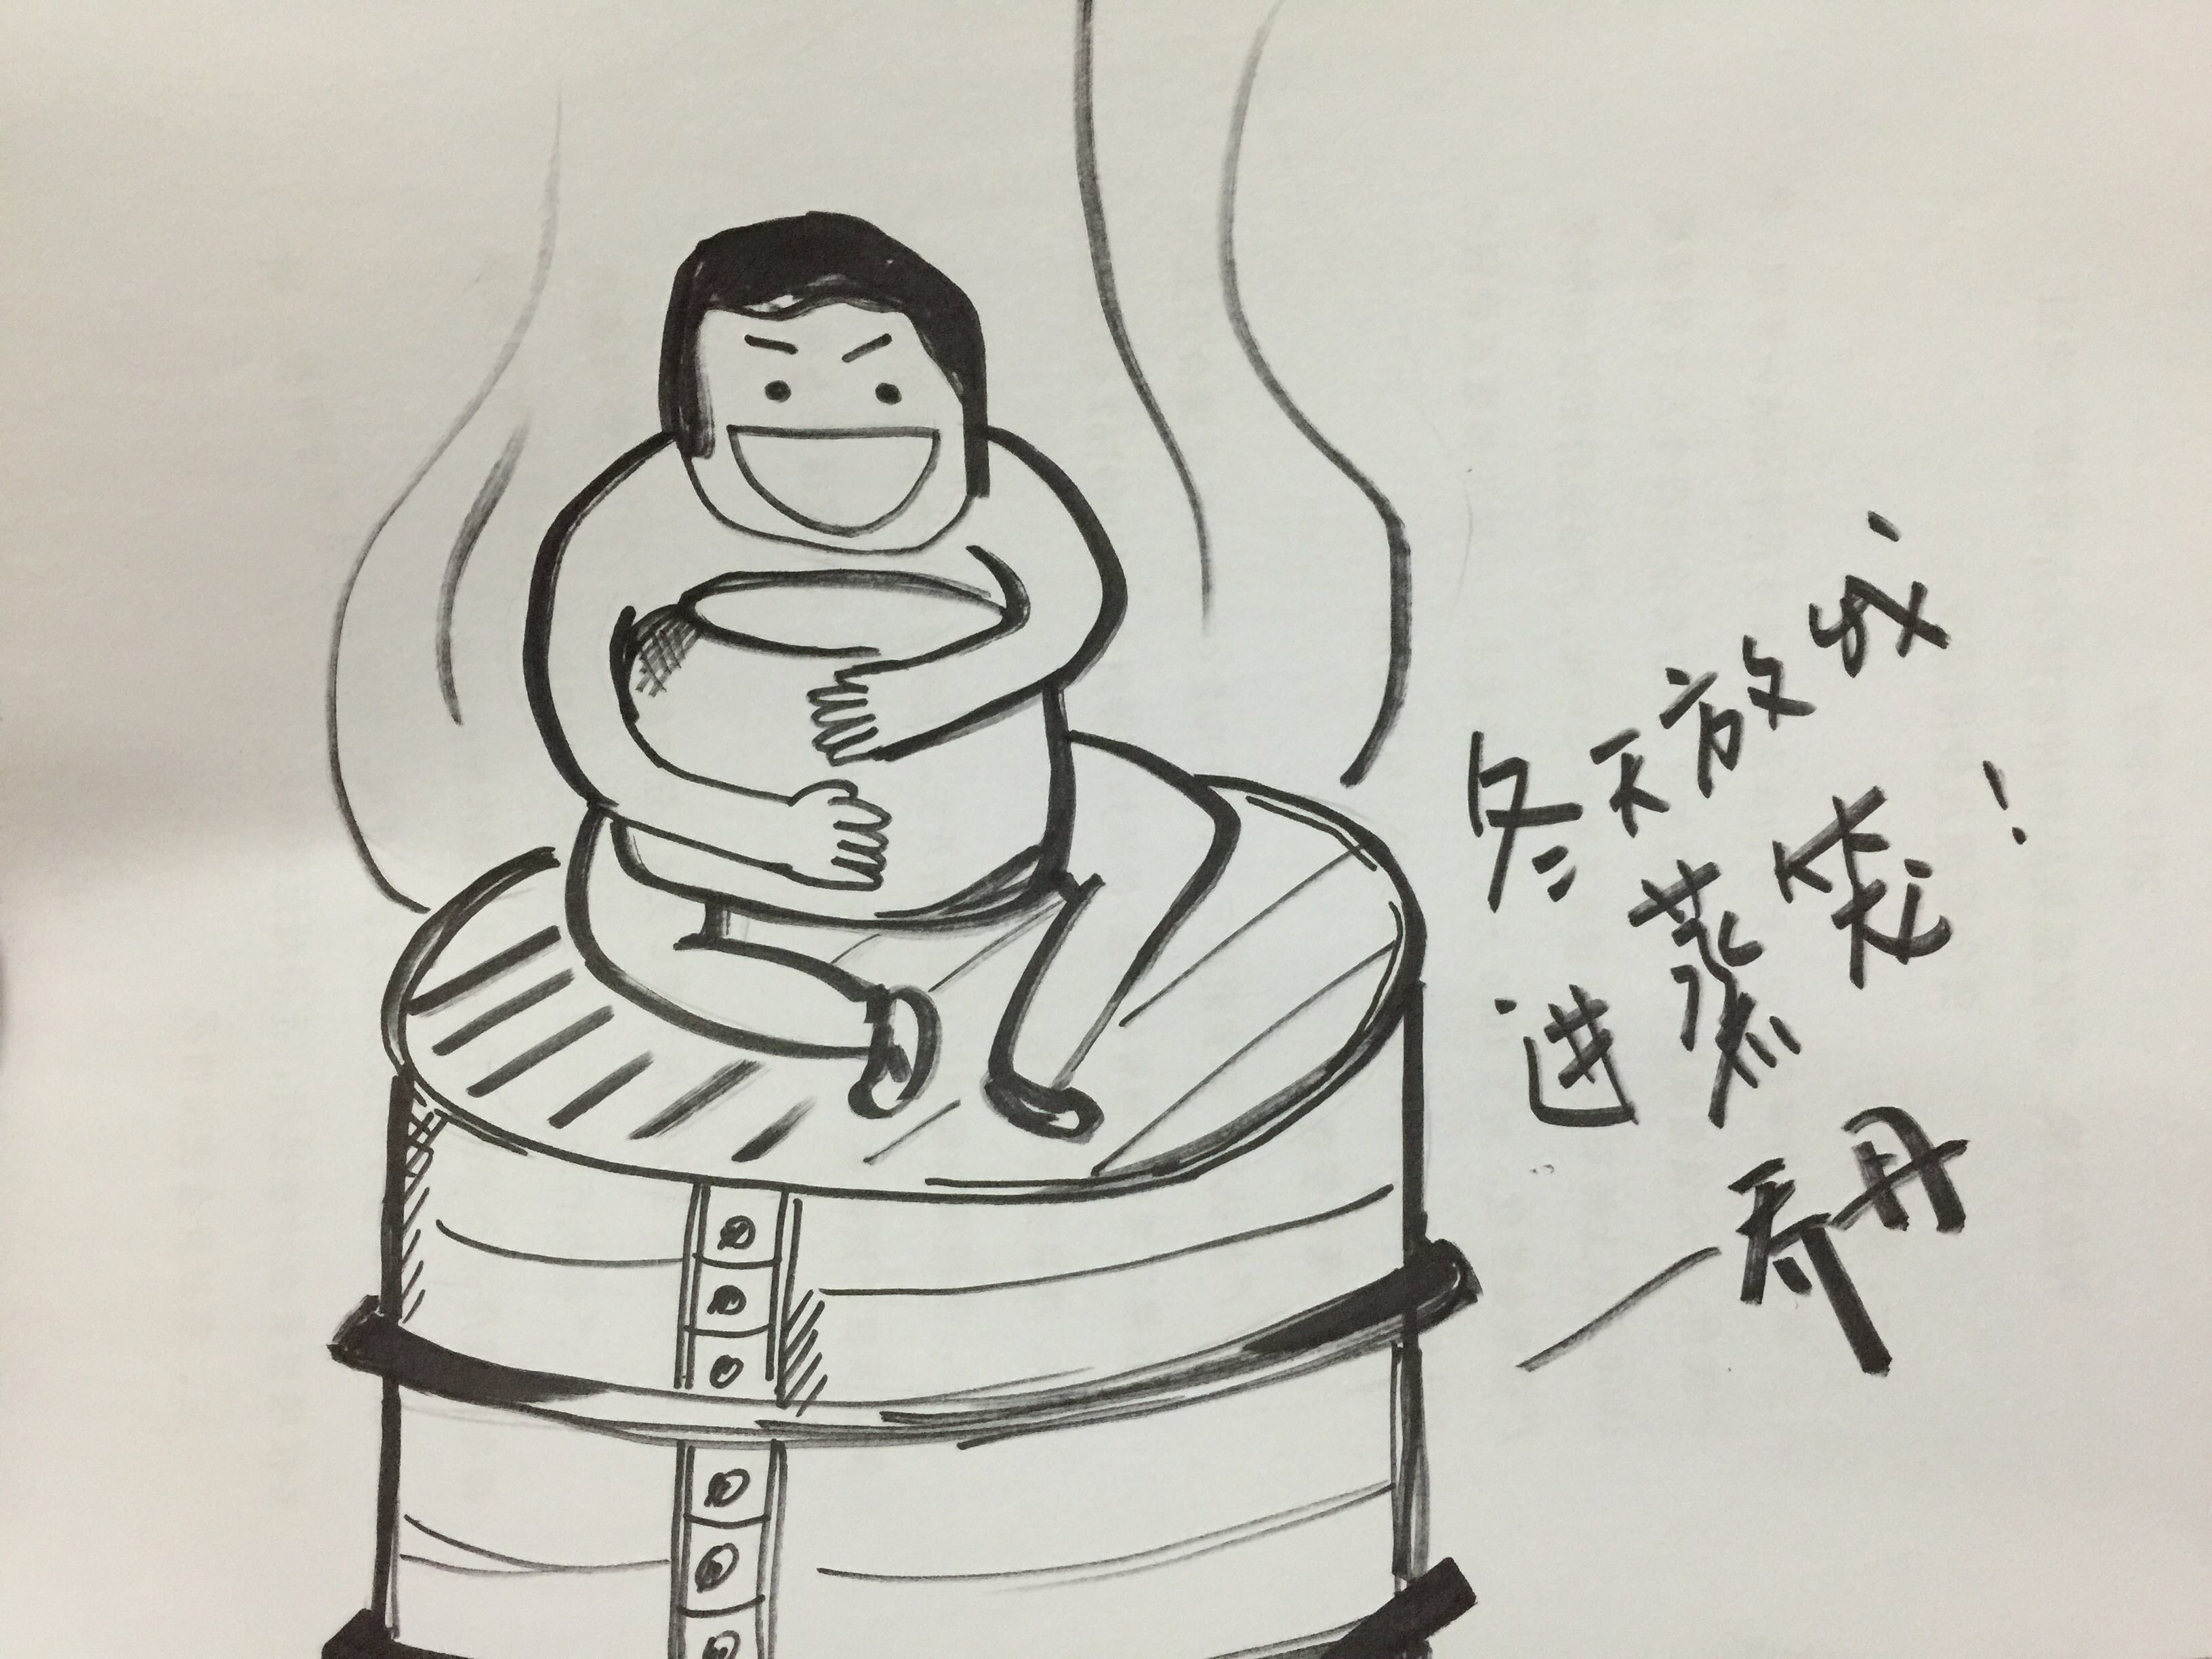 冬天放我
进蒸笼!
—乔丹